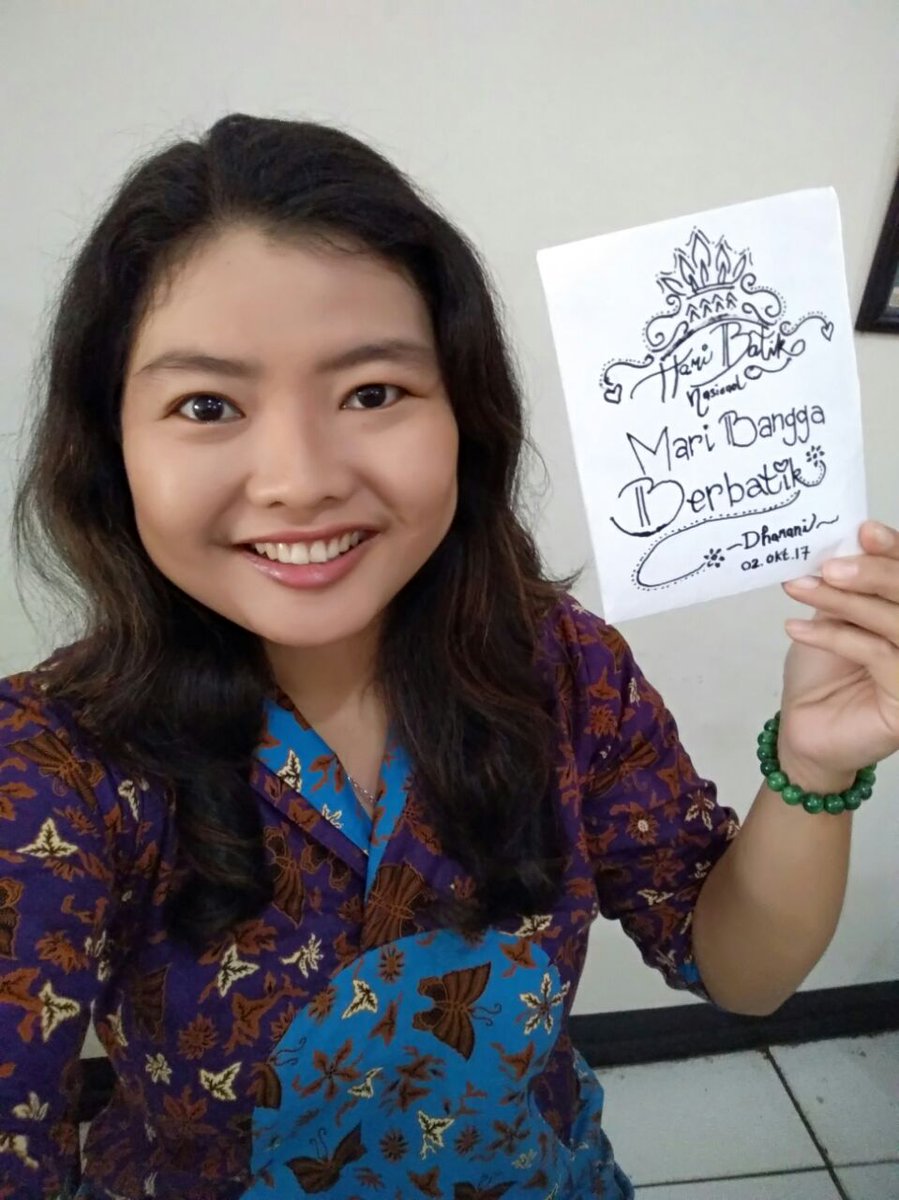 Hari Batik
Nasional
Mari Bangga
Berbatik
~Dhanani~
02.okt.17